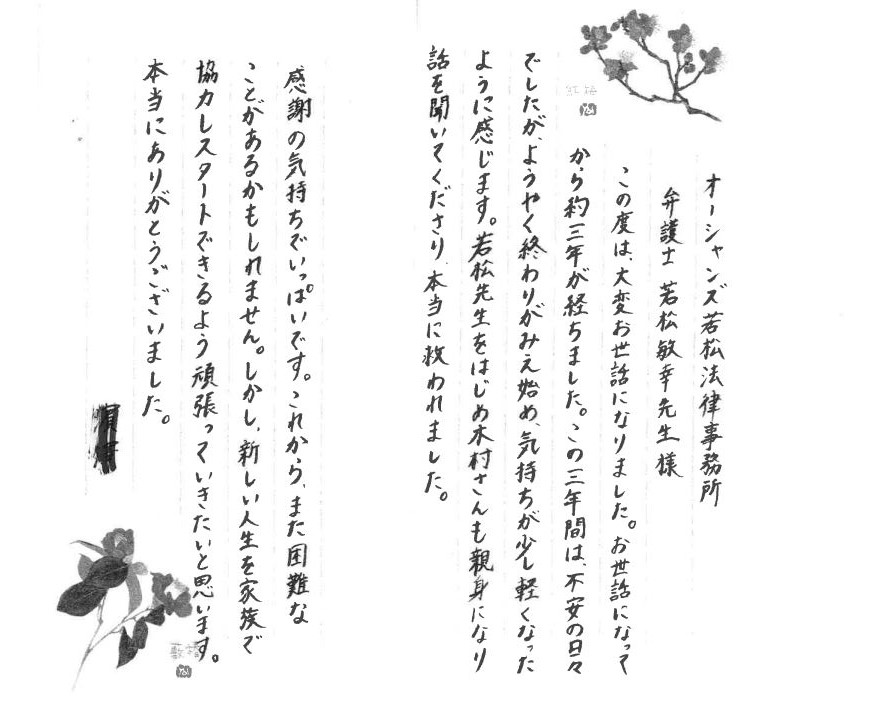 オーシャンズ若松法律事務所
弁護士 若松敏幸先生様
この度は、大変お世話になりました。お世話になって
から約三年が経ちました。この三年間は、不安の日々
でしたが、ようやく終わりがみえ始め、気持ちが少し軽くなった
ように感じます。若松先生をはじめ木村さんも親身になり
話を聞いてくださり、本当に救われました。
感謝の気持ちでいっぱいです。これから、また困難な
ことがあるかもしれません。しかし、新しい人生を家族で
協力しスタートできるよう頑張っていきたいと思います。
本当にありがとうございました。